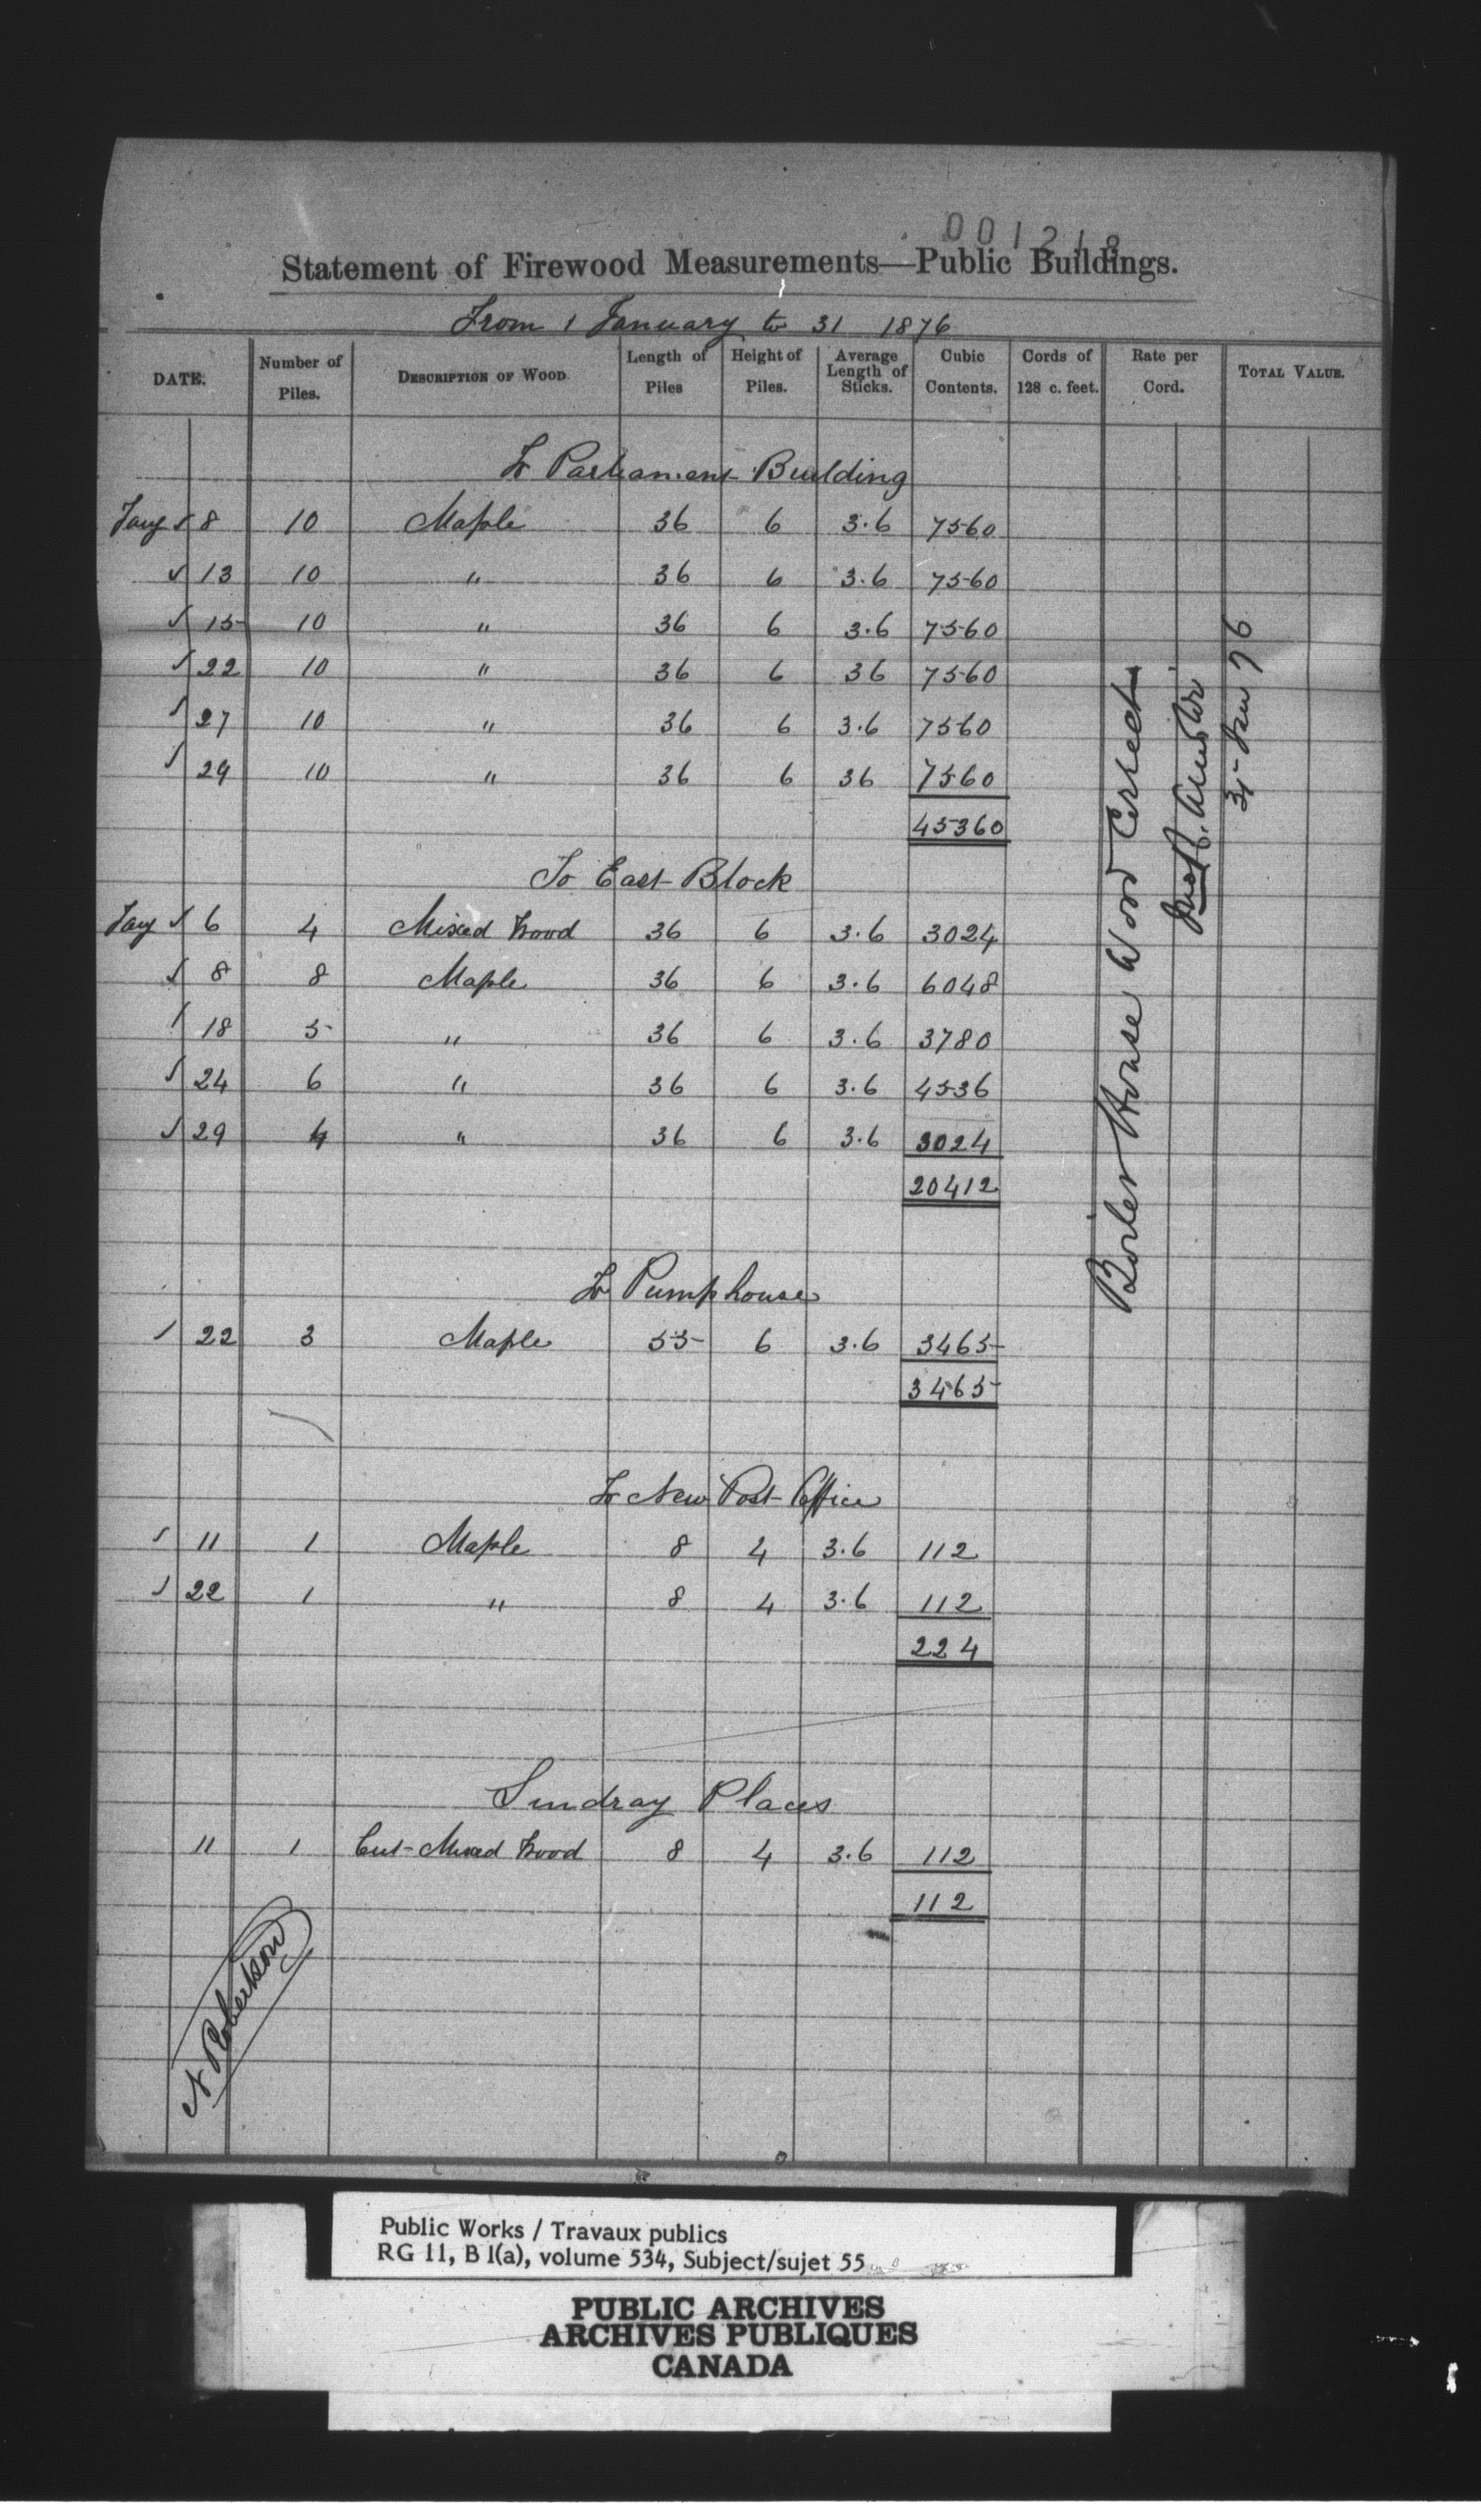 001218
Statement of Firewood Measurements—Public Buildings.
From 1 January to 31 1876
DATE. Number of Piles. DESCRIPTION OF WOOD Length of Piles Height of Piles. Average Length of Sticks. Cubic Contents. Cords of 128 c. feet. Rate per Cord. TOTAL VALUE.
To Parliament Building
Jany ✓ 8 10 Maple 36 6 3.6 7560
✓ 13 10 " 36 6 3.6 7560
✓ 15 10 " 36 6 3.6 7560
✓ 22 10 " 36 6 36 7560
✓ 27 10 " 36 6 3.6 7560
✓ 29 10 " 36 6 36 7560
45360
To East Block
Jany ✓ 6 4 Mixed Wood 36 6 3.6 3024
✓ 8 8 Maple 36 6 3.6 6048
✓ 18 5 " 36 6 3.6 3780
✓ 24 6 " 36 6 3.6 4536
✓ 29 4 " 36 6 3.6 3024
20412
To Pumphouse
✓ 22 3 Maple 55 6 3.6 3465
3465
To New Post Office
✓ 11 1 Maple 8 4 3.6 112
✓ 22 1 " 8 4 3.6 112
224
Sundray Places
11 1 Cut Mixed Wood 8 4 3.6 112
112
Boiler House Wood Correct
31 Jan 76
A Robertson
Public Works / Travaux publics
RG 11, B 1(a), volume 534, Subject/sujet 55
PUBLIC ARCHIVES
ARCHIVES PUBLIQUES
CANADA